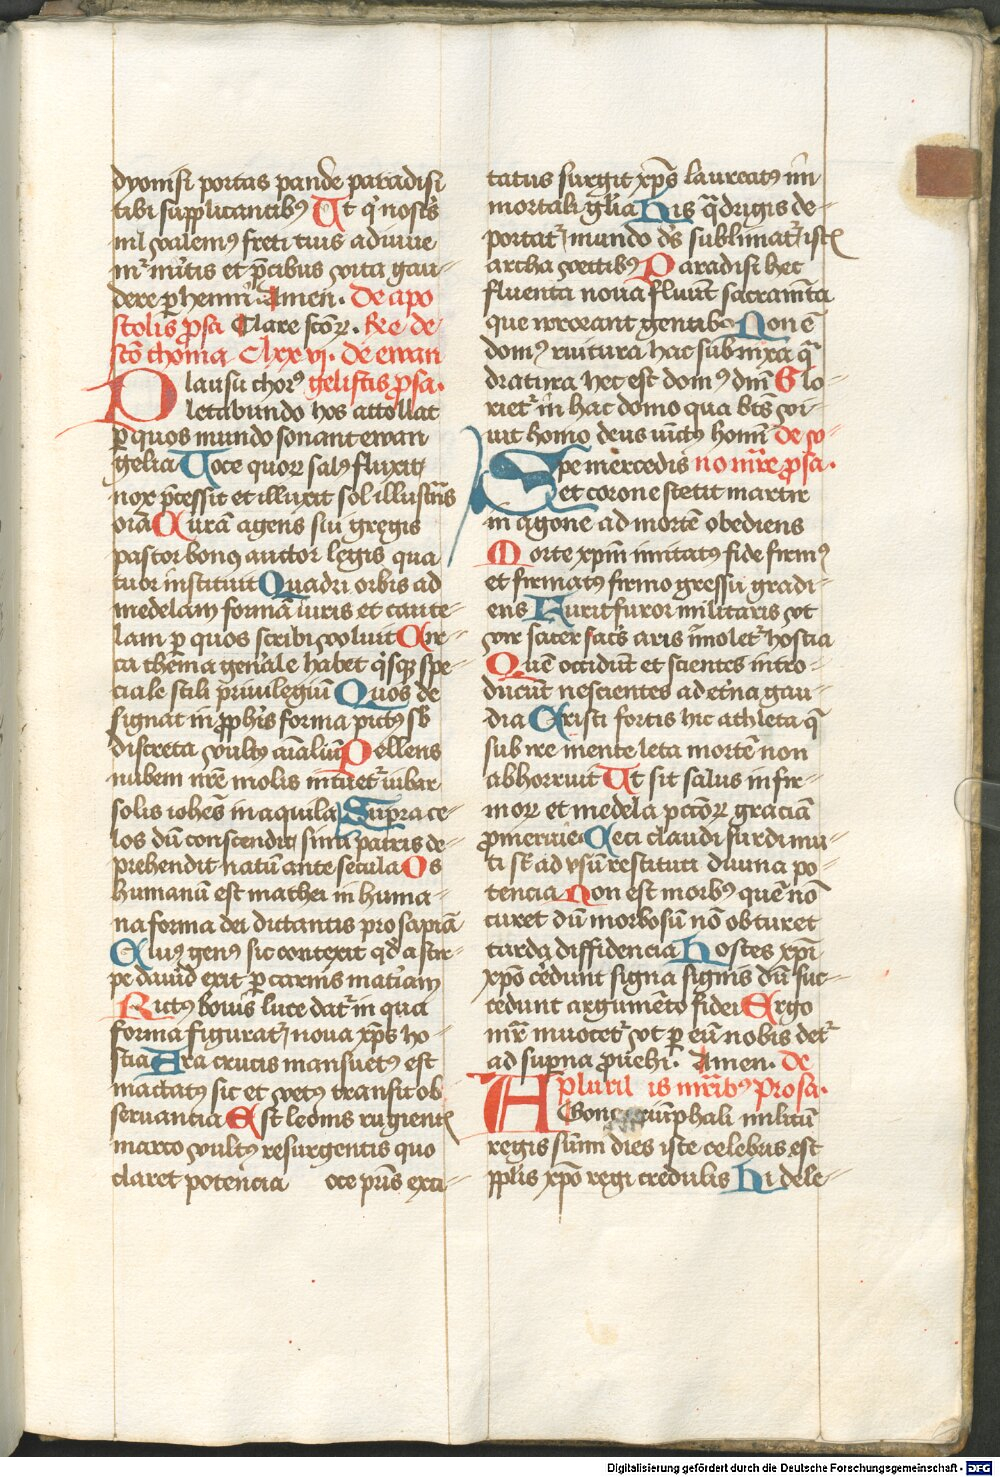 dyonisi portas pande paradisi
tibi supplicantibꝰ Ut qͥ nostͥs
nil valemꝰ freti tuis adiuue
mͬ mͥtis et p̄cibus vita gau-
dere ꝑhenni Amen. De apo
stolis ꝓsa Clare scōꝝ. Re de
scō thoma Clxxvj. de ewan
Plausu chorꝰ gelistis ꝓsa.
letabundo hos attollat
ꝑ quos mundo sonant ewan
gelia Uoce quoꝝ salꝰ fluxit
nox p̄cessit et illuxit sol illustrās
oīa Curā agens sui gregis
pastor bonꝰ auctor legis qua
tuor instituit Quadri orbis ad
medelam formā iuris et caute-
lam ꝑ quos scribi voluit Cir-
ca thema gen̄ale habet qͥsqꝫ spe-
ciale stili priuilegiū Quos de
signat in ꝓphīs forma pictꝰ sb̄
discreta vultꝰ aīaliū Pellens
nubem nr̄e molis intuetͬ iubar
solis iohēs in aquila Supra ce-
los dū conscendit sinu patris de-
prehendit natū ante secula Os
humanū est mathei in huma-
na forma dei dictantis prosapiā
Cuius genꝰ sic contexit qd̄ a stir-
pe dauid exit ꝑ carnis mat̄iam
Rictꝰ bouis luce datͬ in qua
forma figuratͬ noua xp̄s ho-
stia Ara crucis mansuetꝰ est
mactatꝰ sic et vetus transit ob
seruantia Est leonis rugientꝭ
marco vultꝰ resurgentis quo
claret potencia oce pr̄is exci-
tatus surgit xp̄s laureatꝰ im
mortali gl̄ia His qͣdrigis de-
portatͬ mundo ds̄ sublimatͬ istꝭ
archa vectibꝰ Paradisi hec
fluenta noua fluūt sacramēta
que irrorant gentibꝰ Non ē
domꝰ ruitura hac subnixa qͣ
dratura hec est domꝰ dn̄i Glo-
rietͬ in hac domo qua btē vi-
uit homo deus iūctus homī de v-
Spe mercedis no mr̄e ꝓsa.
et corone stetit martir
in agone ad mortē obediens
Morte xp̄m imitatꝰ fide firmꝰ
et firmatꝰ firmo gressu gradi-
ens Furit furor militaris vt
vir sacer sacͥs aris īmoletͬ hostia
Quē occidūt et scientes intro-
ducūt nescientes ad et̄na gau-
dia Cristi fortis hic athleta qͣ
sub ire mente leta mortē non
abhorruit Ut sit salus infir-
moꝝ et medela pctōꝝ graciā
ꝓmeruit Ceci claudi surdi mu-
ti st̄ ad vsū restituti diuina po-
tencia Non est morbꝰ quē nō
curet dū morbosū nō obturet
turda diffidencia Hostes xp̄i
xpō cedunt signa signis dū suc-
cedunt argumēto fidei Ergo
mr̄ inuocetͬ vt ꝑ eū nobis detͬ
ad suꝑna ꝓuehi. Amen. de
plurilis mr̄ibꝰ Prosa.
Agone triūphali militū
regis sūmi dies iste celebris est
pplīs xpō regi credulis Hi dele-
Digitalisierung gefördert durch die Deutsche Forschungsgemeinschaft - DFG